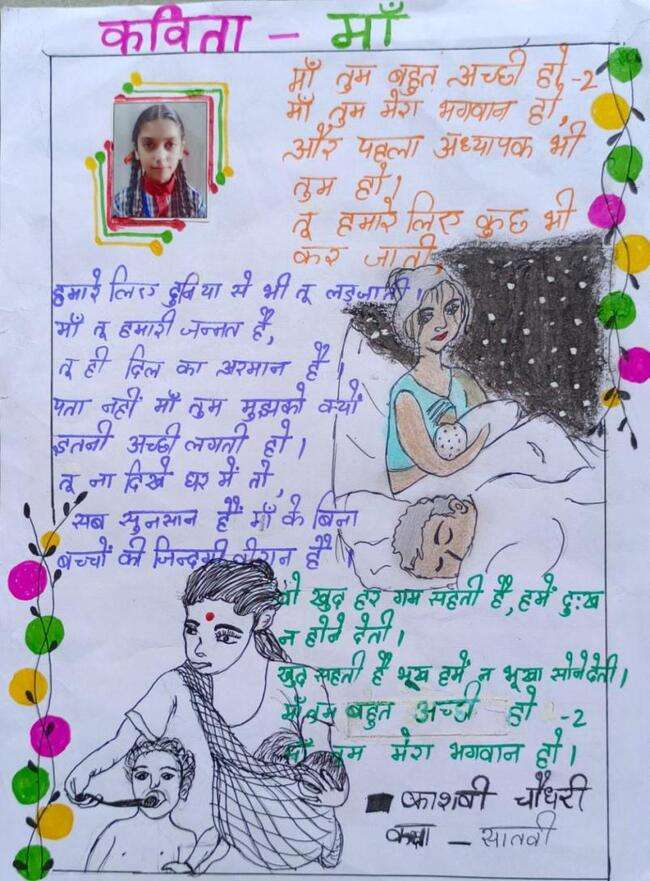 कविता - माँ
माँ तुम बहुत अच्छी हो, -2
माँ तुम मेरा भगवान हो,
और पहला अध्यापक भी
तुम हो।
तू हमारे लिए कुछ भी
कर जाती,
हमारे लिए दुनिया से भी तू लड़जाती।
माँ तू हमारी जन्नत है,
तू ही दिल का अरमान है।
पता नहीं माँ तुम मुझको क्यों
इतनी अच्छी लगती हो।
तू ना दिखे घर में तो,
सब सुनसान है माँ के बिना
बच्चों की जिन्दगी वीरान है।
वो खुद हर गम सहती है, हमें दुःख
न होने देती।
खुद सहती है भूख हमें न भूखा सोने देती।
माँ तुम बहुत अच्छी हो -2
माँ तुम मेरा भगवान हो।
काशबी चौधरी
कक्षा - सातवी